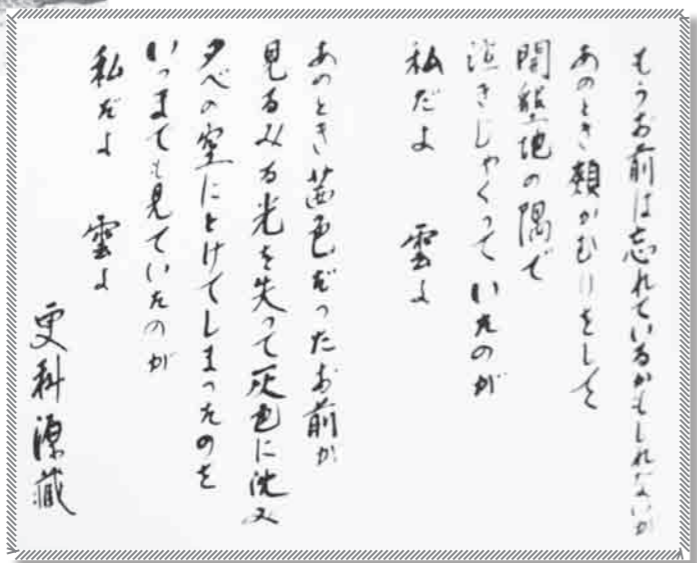 もうお前は忘れているかもしれないが
あのとき頬かむりをして
開墾地の隅で
泣きじゃくっていたのが
私だよ 雲よ
あのとき茜色だったお前が
見るみる光を失って灰色に沈み
夕べの空にとけてしまったのを
いつまでも見ていたのが
私だよ 雲よ
更科源蔵